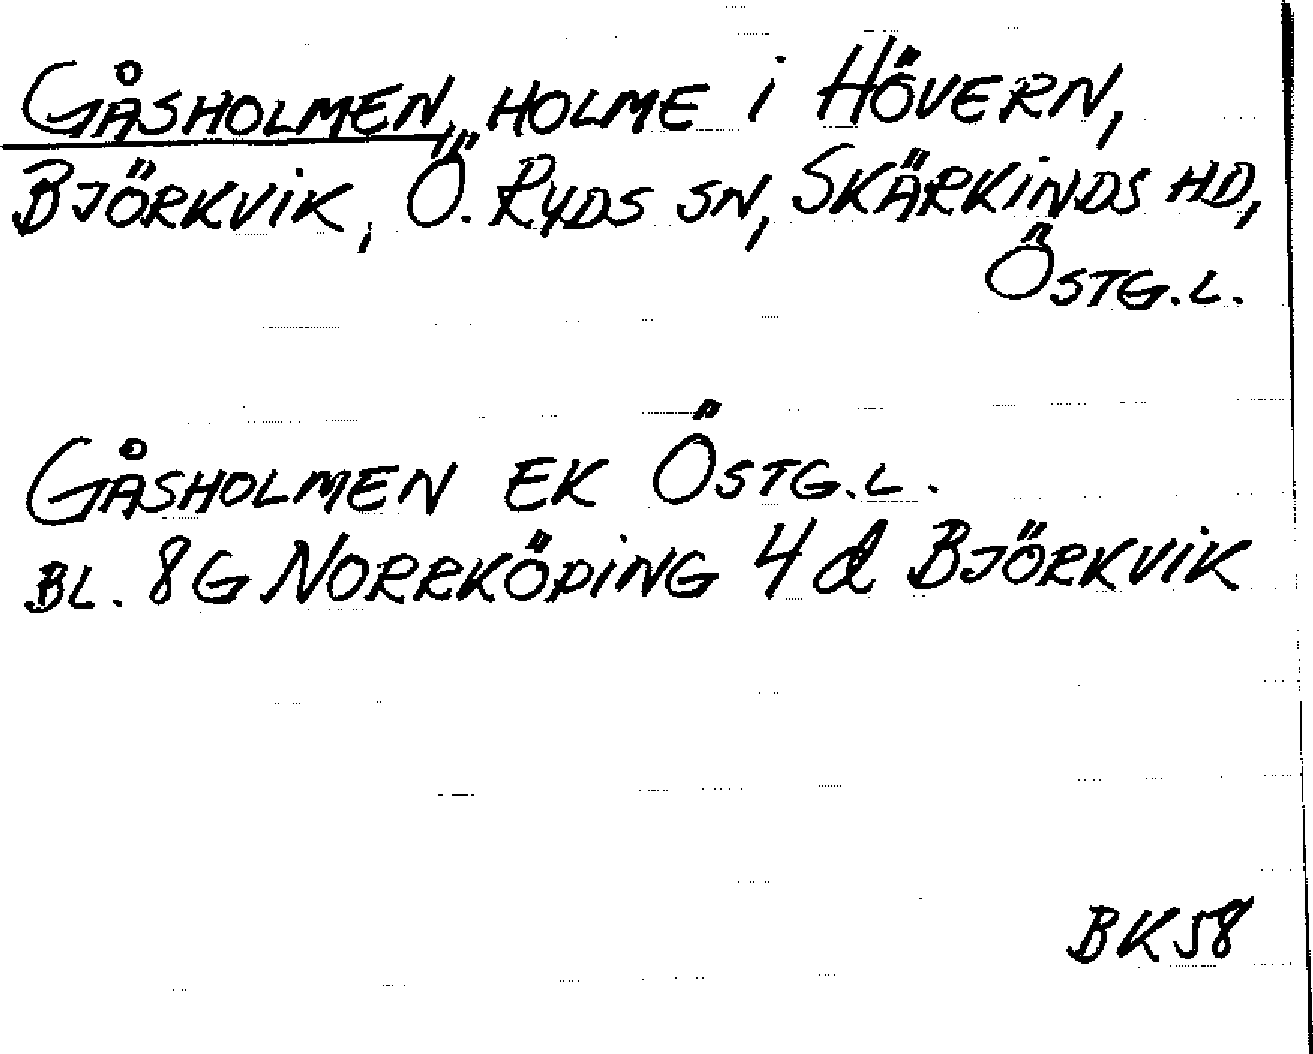 GÅSHOLMEN, HOLME i HÖVERN,
BJÖRKVIK, Ö. RYDS SN, SKÄRKINDS HD,
ÖSTG.L.
GÅSHOLMEN EK ÖSTG.L.
BL. 8G NORRKÖPING 4d BJÖRKVIK
BK58